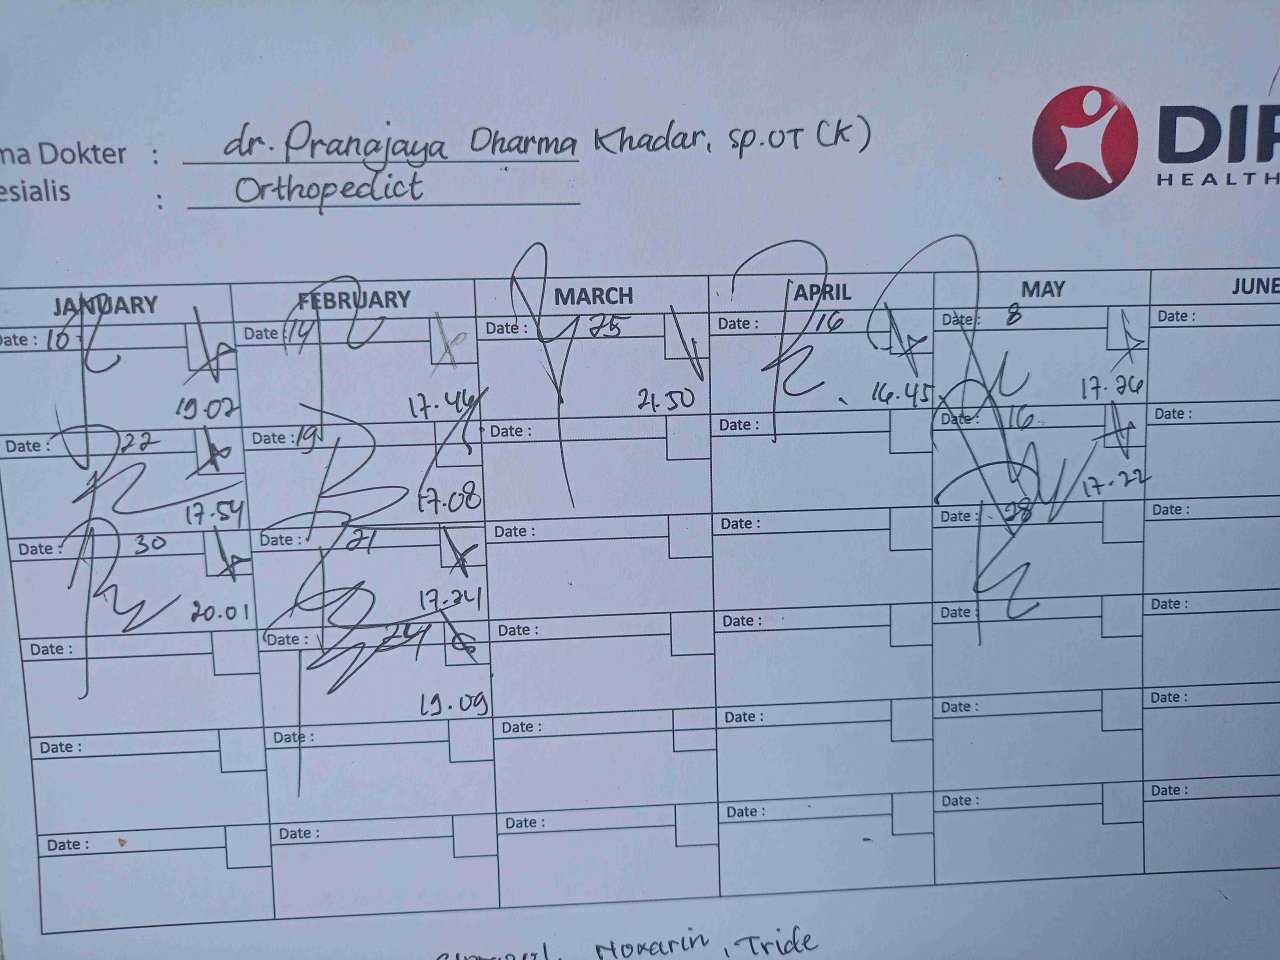 ma Dokter : dr. Pranajaya Dharma Khadar, sp.OT (K)
esialis : Orthopedict
DIP
HEALTH
JANUARY FEBRUARY MARCH APRIL MAY JUNE
Date : 10 Date : 14 Date : 25 Date : 16 Date : 8 Date :
19.02 17.46 21.50 16.45 17.26
Date : 22 Date : 19 Date : Date : Date : 16 Date :
17.54 17.08 17.22
Date : 30 Date : 21 Date : Date : Date : 28 Date :
20.01 17.24
Date : Date : 24 Date : Date : Date :
19.09
Date : Date : Date : Date : Date : Date :
Date : Date : Date : Date : Date : Date :
Noxarin, Tride